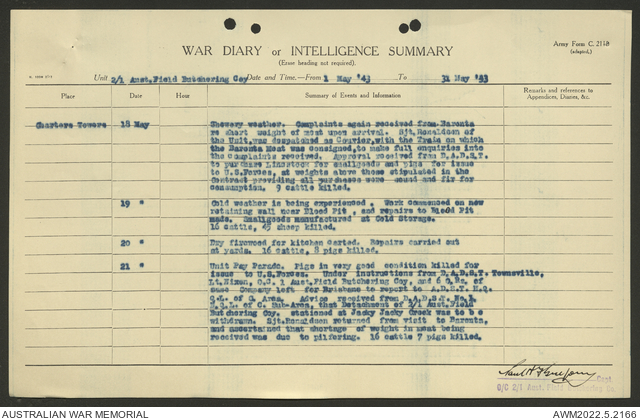 WAR DIARY or INTELLIGENCE SUMMARY
Army Form C. 2118
(adapted.)
(Erase heading not required).
Unit 2/1 Aust.Field Butchering Coy Date and Time.—From 1 May '43 To 31 May '93
Place Date Hour Summary of Events and Information Remarks and references to
Appendices, Diaries, &c.
Charters Towers 18 May Showery weather. Complaints again received from Baronta
re short weight of meat upon arrival. Sjt.Ronaldson of
the Unit,was despatched as Courier,with the Train on which
the Baronta Meat was consigned,to make full enquiries into
the Complaints received. Approval received from D.A.D.S.T.
to purchase Livestock for smallgoods and pigs for issue
to U.S.Forces, at weights above those stipulated in the
Contract providing all purchases were sound and fit for
consumption. 9 cattle killed.
19 " Cold weather is being experienced. Work commenced on new
retaining wall near Blood Pit, and repairs to Blood Pit
made. Smallgoods manufactured at Cold Storage.
16 cattle, 45 sheep killed.
20 " Dry firewood for kitchen carted. Repairs carried out
at yards. 16 cattle, 8 pigs killed.
21 " Unit Pay Parade. Pigs in very good condition killed for
issue to U.S.Forces. Under instructions from D.A.D.S.T. Townsville,
Lt.Nixon, O.C. 1 Aust.Field Butchering Coy, and 6 O.Rs. of
same Company left for Brisbane to report to A.D.S.T. H.Q.
Q.L. of C. Area. Advice received from D.A.D.S.T. No.1
Q.L. of C. Sub-Area, that Detachment of 2/1 Aust.Field
Butchering Coy. stationed at Jacky Jacky Creek was to be
withdrawn. Sjt.Ronaldson returned from visit to Baronta,
and ascertained that shortage of weight in meat being
received was due to pilfering. 16 cattle 7 pigs killed.
Capt
O/C 2/1 Aust. Field Butchering Co.
AUSTRALIAN WAR MEMORIAL
AWM2022.5.2166